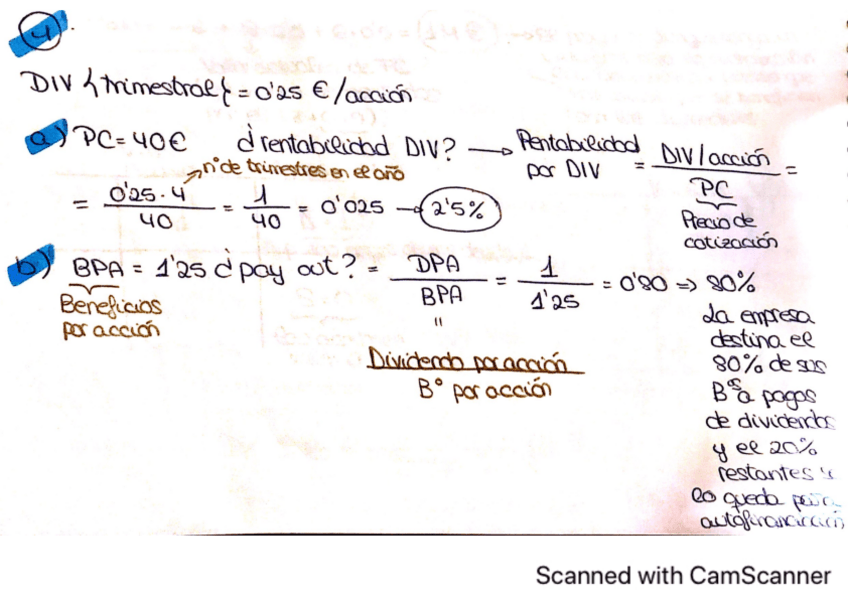 4.
DIV {trimestral} = 0'25 €/acción
a) PC = 40€ ¿rentabilidad DIV? → Rentabilidad por DIV = DIV/acción / PC =
Precio de cotización
nº de trimestres en el año
= 0'25 · 4 / 40 = 1 / 40 = 0'025 → 2'5%
b) BPA = 1'25 ¿pay out? = DPA / BPA = 1 / 1'25 = 0'80 ⇒ 80%
Beneficios
por acción
"
Dividendo por acción
Bº por acción
La empresa
destina el
80% de sus
Bºs a pagos
de dividendos
y el 20%
restantes
lo queda para
autofinanciación
Scanned with CamScanner